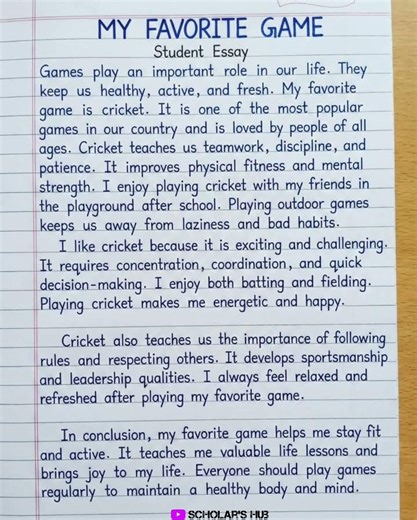 MY FAVORITE GAME
Student Essay
Games play an important role in our life. They
keep us healthy, active, and fresh. My favorite
game is cricket. It is one of the most popular
games in our country and is loved by people of all
ages. Cricket teaches us teamwork, discipline, and
patience. It improves physical fitness and mental
strength. I enjoy playing cricket with my friends in
the playground after school. Playing outdoor games
keeps us away from laziness and bad habits.
I like cricket because it is exciting and challenging.
It requires concentration, coordination, and quick
decision-making. I enjoy both batting and fielding.
Playing cricket makes me energetic and happy.
Cricket also teaches us the importance of following
rules and respecting others. It develops sportsmanship
and leadership qualities. I always feel relaxed and
refreshed after playing my favorite game.
In conclusion, my favorite game helps me stay fit
and active. It teaches me valuable life lessons and
brings joy to my life. Everyone should play games
regularly to maintain a healthy body and mind.
SCHOLAR'S HUB